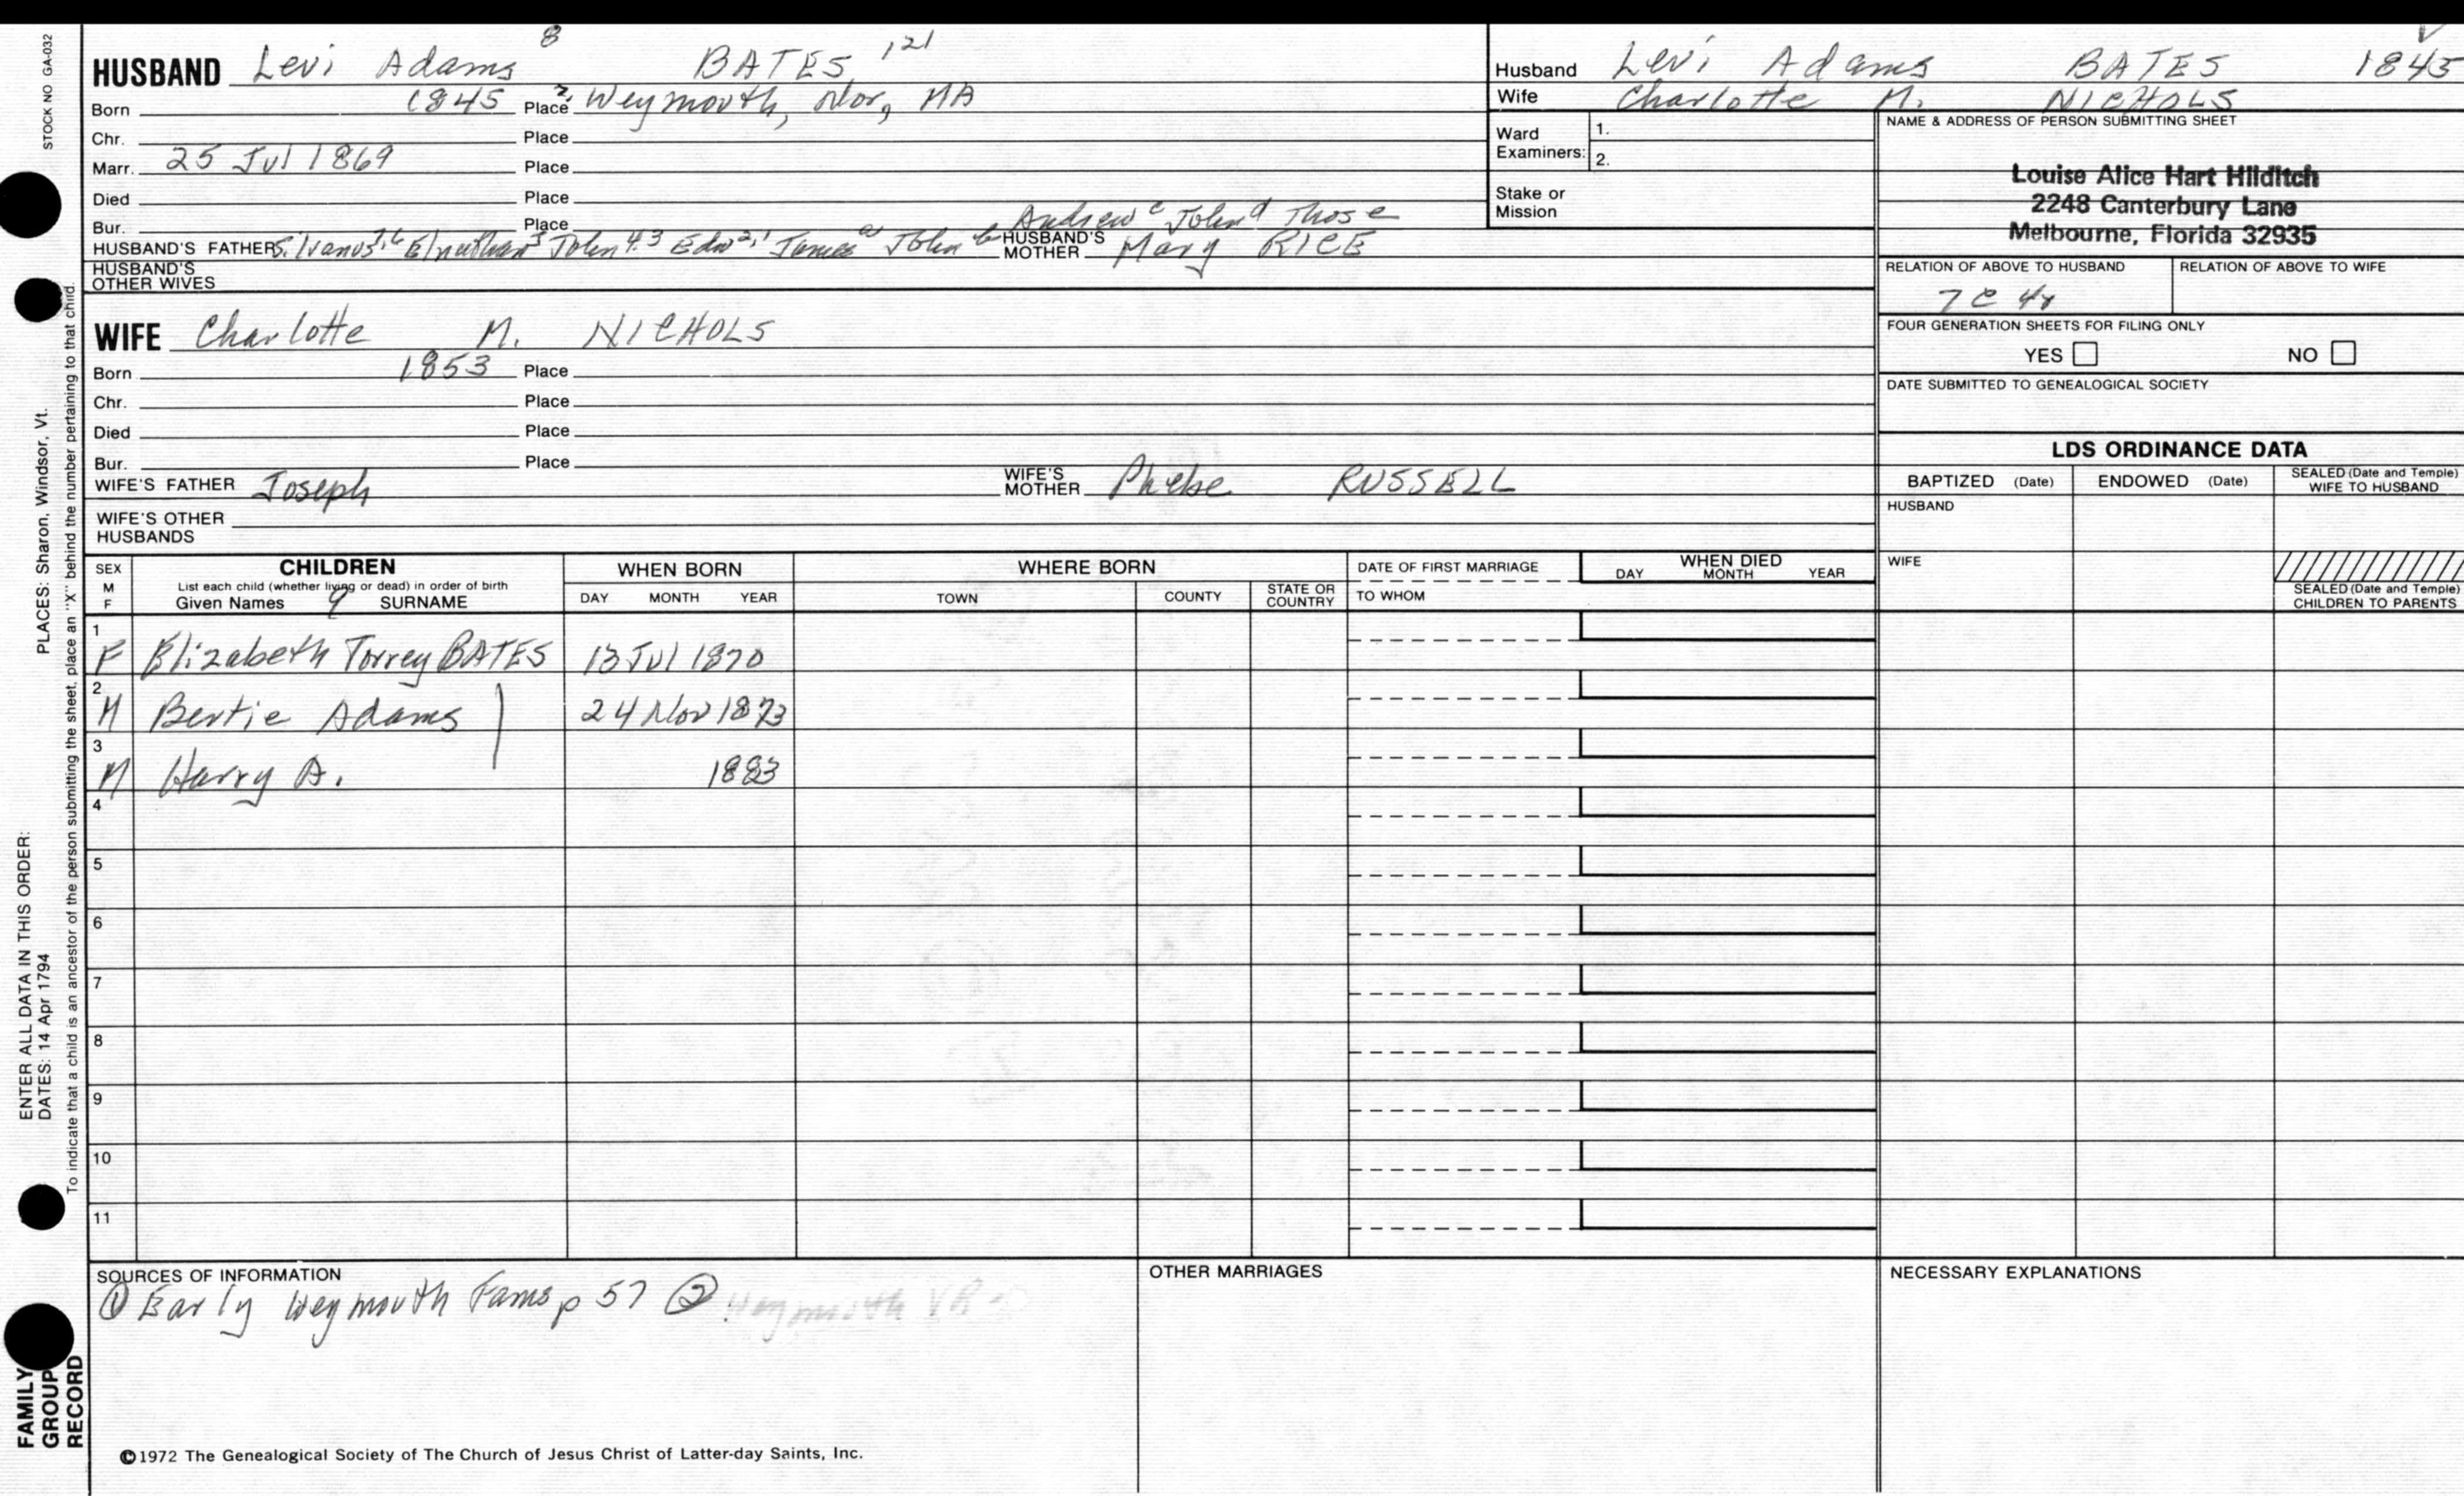 STOCK NO GA-032
HUSBAND Levi Adams 8 BATES 121
Born 1845 Place 2. Weymouth, Nor, MA
Chr. Place
Marr. 25 Jul 1869 Place
Died Place
Bur. Place
Andrew c John d Thos e
HUSBAND'S FATHER Silvanus 7,6 Elnathan 5 John 4.3 Edw 2,1 James a John b HUSBAND'S MOTHER Mary RICE
HUSBAND'S OTHER WIVES
WIFE Charlotte M. NICHOLS
Born 1853 Place
Chr. Place
Died Place
Bur. Place
WIFE'S FATHER Joseph WIFE'S MOTHER Phebe RUSSELL
WIFE'S OTHER HUSBANDS
Husband Levi Adams BATES 1845
Wife Charlotte M. NICHOLS
Ward Examiners: 1.
2.
Stake or Mission
NAME & ADDRESS OF PERSON SUBMITTING SHEET
Louise Alice Hart Hilditch
2248 Canterbury Lane
Melbourne, Florida 32935
RELATION OF ABOVE TO HUSBAND RELATION OF ABOVE TO WIFE
7C 4r
FOUR GENERATION SHEETS FOR FILING ONLY
YES NO
DATE SUBMITTED TO GENEALOGICAL SOCIETY
LDS ORDINANCE DATA
BAPTIZED (Date) ENDOWED (Date) SEALED (Date and Temple) WIFE TO HUSBAND
HUSBAND
WIFE
SEALED (Date and Temple) CHILDREN TO PARENTS
SEX M F
CHILDREN
List each child (whether living or dead) in order of birth
Given Names 9 SURNAME
WHEN BORN
DAY MONTH YEAR
WHERE BORN
TOWN COUNTY STATE OR COUNTRY
DATE OF FIRST MARRIAGE
TO WHOM
WHEN DIED
DAY MONTH YEAR
1 F Elizabeth Torrey BATES 13 Jul 1870
2 M Bertie Adams 24 Nov 1873
3 M Harry A. 1883
4
5
6
7
8
9
10
11
SOURCES OF INFORMATION
① Early Weymouth Fams p 57 ② Weymouth VR
OTHER MARRIAGES
NECESSARY EXPLANATIONS
©1972 The Genealogical Society of The Church of Jesus Christ of Latter-day Saints, Inc.
FAMILY GROUP RECORD
ENTER ALL DATA IN THIS ORDER:
DATES: 14 Apr 1794 PLACES: Sharon, Windsor, Vt.
To indicate that a child is an ancestor of the person submitting the sheet, place an "X" behind the number pertaining to that child.